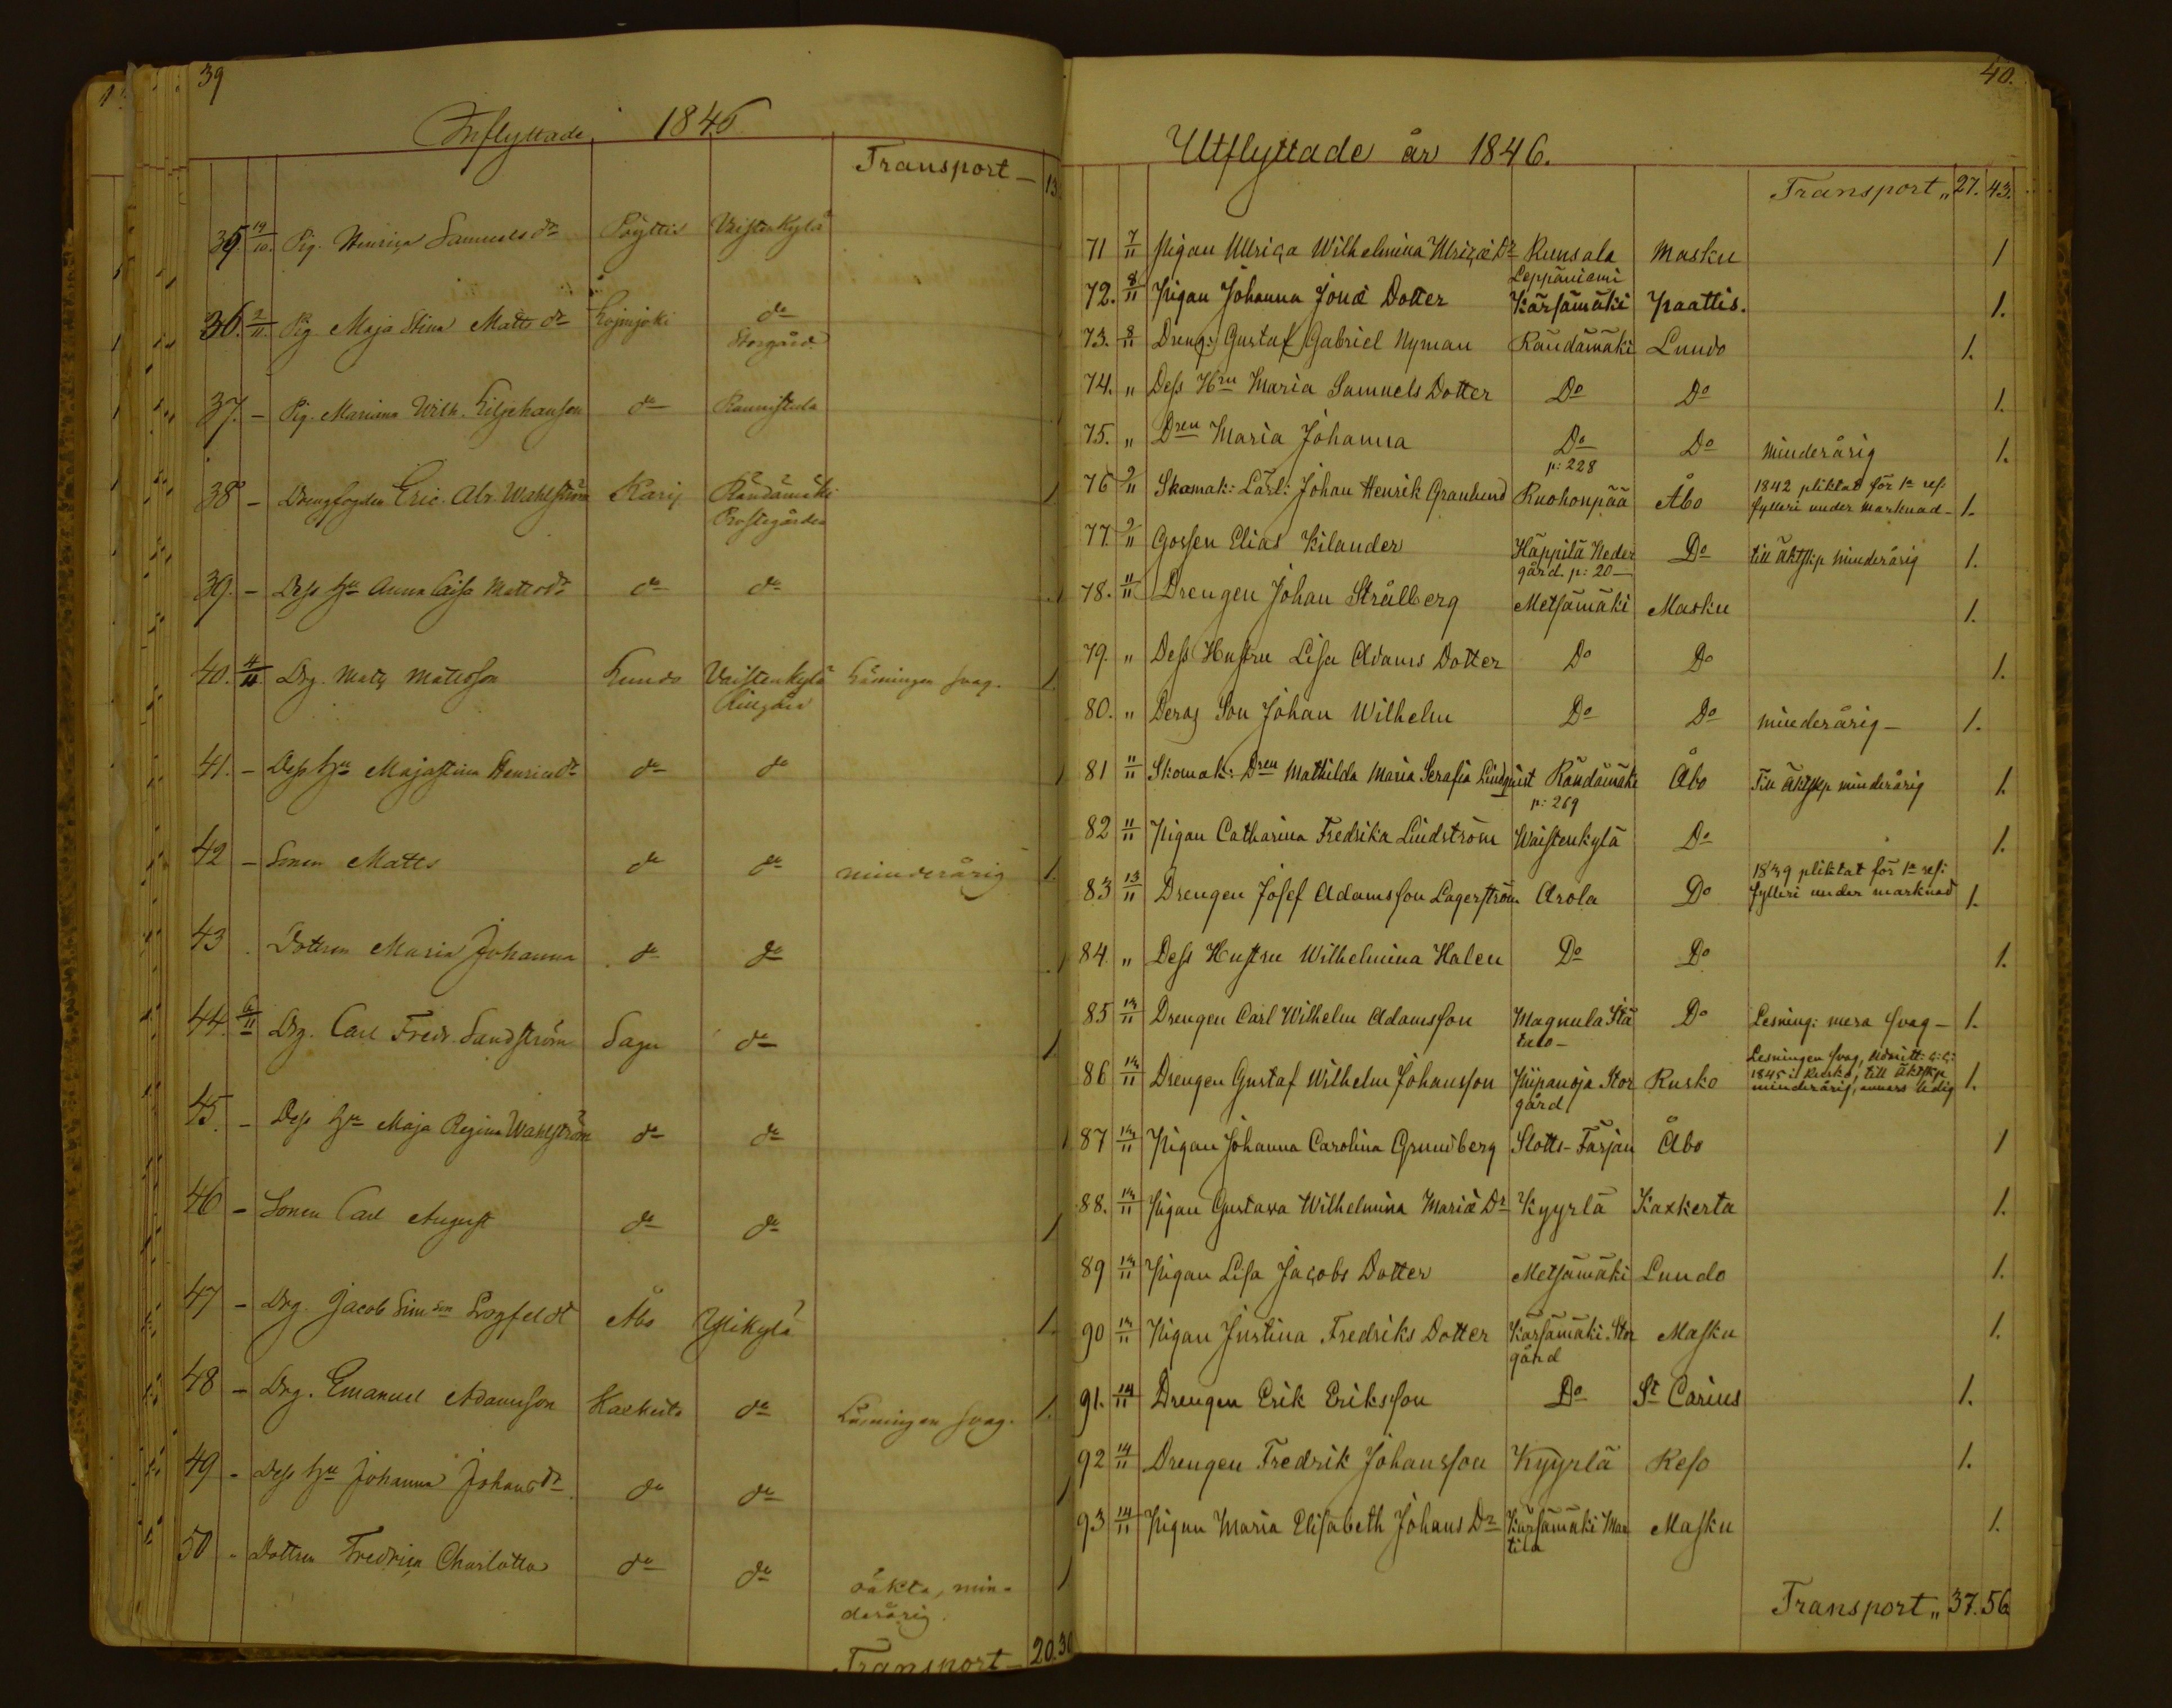 39
Inflyttade 1846
Transport – 13.
35. 14/10. Pig. Henrica Samuels dr Pöyttis Vaistenkylä
36. 2/11. Pig Maja Stina Matts dr Lojmjoki do
Storgård.
37. – Pig. Mariana Wilh. Liljehanson do Rannistula
38 – Drengfogden Eric. Abr. Wahlström Karis Räntämäki 1
Prostgården
39. – Dess hu Anna Caisa Matts dr do do 1
40. 4/11. Drg. Matts Mattsson Lundo Vaistenkylä Läsningen svag. 1.
41. – Dess hu Maja Stina Henrics dr do do 1
42 – Sonen Matts do do minderårig 1.
43 . Dottren Maria Johanna do do 1
44. 6/11 Drg. Carl Fredr. Sandström Sagu do 1
45. – Dess hu Maja Regina Wahlström do do 1
46 – Sonen Carl August do do 1
47 – Drg. Jacob Sim son Åbo Ylikylä 1.
48 – Drg. Emanuel Adamsson Kackerta do Läsningen svag. 1.
49 – Dess hu Johanna Johans dr do do 1
50 . Dottren Fredrica Charlotta do do oäkta, min- 1
derårig.
Transport – 20. 30
40.
Utflyttade år 1846.
Transport „ 27. 43.
71 7/11 Pigan Ulrica Wilhelmina Ulricæ Dr Runsala Masku 1
Leppäniemi
72. 8/11 Pigan Johanna Jonæ Dotter Kärsämäki Paattis. 1.
73. 8/11 Dreng: Gustaf Gabriel Nyman Räntämäki Lundo 1.
74. „ Dess Hru Maria Samuels Dotter Do Do 1.
75. „ Dren Maria Johanna Do Do Minderårig 1.
p: 228
76 9/11 Skomak: Lärl: Johan Henrik Granlund Ruohonpää Åbo 1842 pliktat för 1a res. fylleri under marknad – 1.
77. 9/11 Gossen Elias Kilander Häppilä Neder Do till äktskp minderårig 1.
gård. p: 20 –
78. 11/11 Drengen Johan Strålberg Metsämäki Masku 1.
79. „ Dess Hustru Lisa Adams Dotter Do Do 1.
80. „ Deras Son Johan Wilhelm Do Do minderårig – 1.
81 11/11 Skomak: Dren Mathilda Maria Serafia Lindqvist Räntämäki Åbo Till äktskp minderårig 1.
p: 269
82 11/11 Pigan Catharina Fredrika Lindström Waistenkylä Do 1.
83 13/11 Drengen Josef Adamsson Lagerström Arola Do 1839 pliktat för 1a res: fylleri under marknad 1.
84. „ Dess Hustru Wilhelmina Halen Do Do 1.
85 14/11 Drengen Carl Wilhelm Adamsson Magnula Stå Do Lesning: mera svag – 1.
86 14/11 Drengen Gustaf Wilhelm Johansson Piipanoja Stor Rusko Lesningen svag, Admitt: 1.
gård 1845 i Rusko, till äktskp
minderårig, annars ledig
87 14/11 Pigan Johanna Carolina Grundberg Slotts-Färjan Åbo 1
88. 14/11 Pigan Gustava Wilhelmina Mariæ Dr Kyyrlä Kaxkerta 1.
89 14/11 Pigan Lisa Jacobs Dotter Metsämäki Lundo 1.
90 14/11 Pigan Justina Fredriks Dotter Kärsämäki Stor Masku 1.
gård
91. 14/11 Drengen Erik Eriksson Do St Carius 1.
92 14/11 Drengen Fredrik Johansson Kyyrlä Reso 1.
93 14/11 Pigan Maria Elisabeth Johans Dr Kärsämäki Man Masku 1.
tila
Transport „ 37. 56